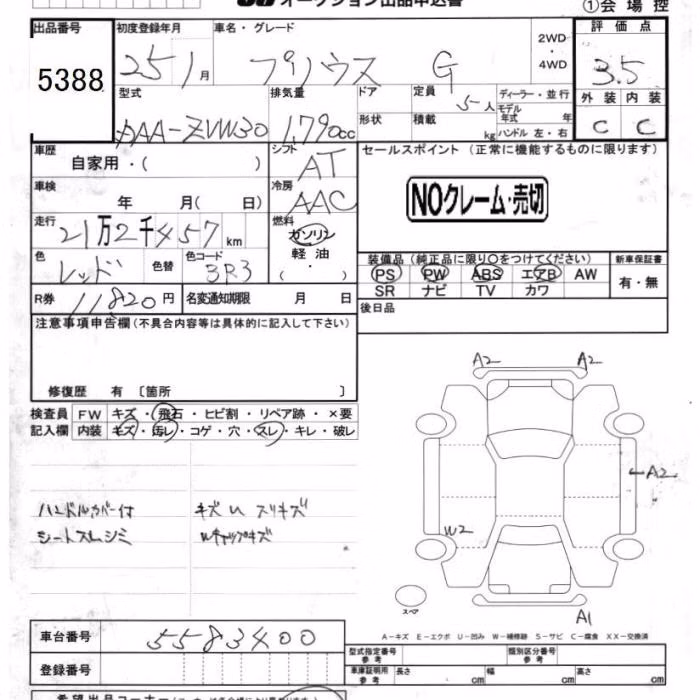 オークション出品申込書
①会場控
出品番号
5388
初度登録年月
25 1月
車名・グレード
プリウス G
2WD
・
4WD
評価点
3.5
型式
DAA-ZVW30
排気量
1.790cc
ドア
形状
定員
5人
積載
kg
ディーラー・並行
モデル年式 年
ハンドル 左・右
外装 内装
C C
車歴
自家用・( )
シフト
AT
車検
年 月( 日)
冷房
AAC
セールスポイント (正常に機能するものに限ります)
NOクレーム・売切
走行
21万2千457km
燃料
ガソリン
軽油
( ・ )
色
レッド
色替
色コード
3R3
装備品(純正品に限り○をつけてください)
PS PW ABS エアB AW
SR ナビ TV カワ
新車保証書
有・無
R券
11820円
名変通知期限 月 日
後日品
注意事項申告欄(不具合内容等は具体的に記入して下さい)
修復歴 有 〔箇所 〕
検査員
記入欄
FW キズ・飛石・ヒビ割・リペア跡・×要
内装 キズ・汚レ・コゲ・穴・スレ・キレ・破レ
A2 A2
A2
W2
A1
スペア
ハンドルカバー付 キズ U スリキズ
シートスレシミ Wキャップキズ
A-キズ E-エクボ U-凹み W-補修跡 S-サビ C-腐食 XX-交換済
車台番号
5583400
登録番号
型式指定番号
参考
類別区分番号
参考
車庫証明用
参考
長さ cm 幅 cm 高さ cm
希望出品コーナー